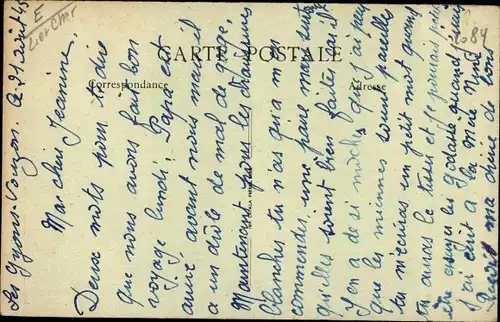 E
Loir et Cher
1684
CARTE POSTALE
Correspondance
Adresse
Vouzon. Le 21 août 45
Ma chère Jeannine,
Deux mots pour te dire
que nous avons fait bon
voyage lundi. Papa est
arrivé avant nous mais il
a un drôle de mal de gorge.
Maintenant pour les chaussures
blanches tu n'as qu'à m'en
commander une paire mais suis
qu'elles soient bien faites car il
y en a de si moches que j'ai peur
que les miennes soient pareilles
tu m'écriras un petit mot quand
tu auras le tissu et je pourrais
être essayer les quand
J'ai écrit à
ma chérie de bons